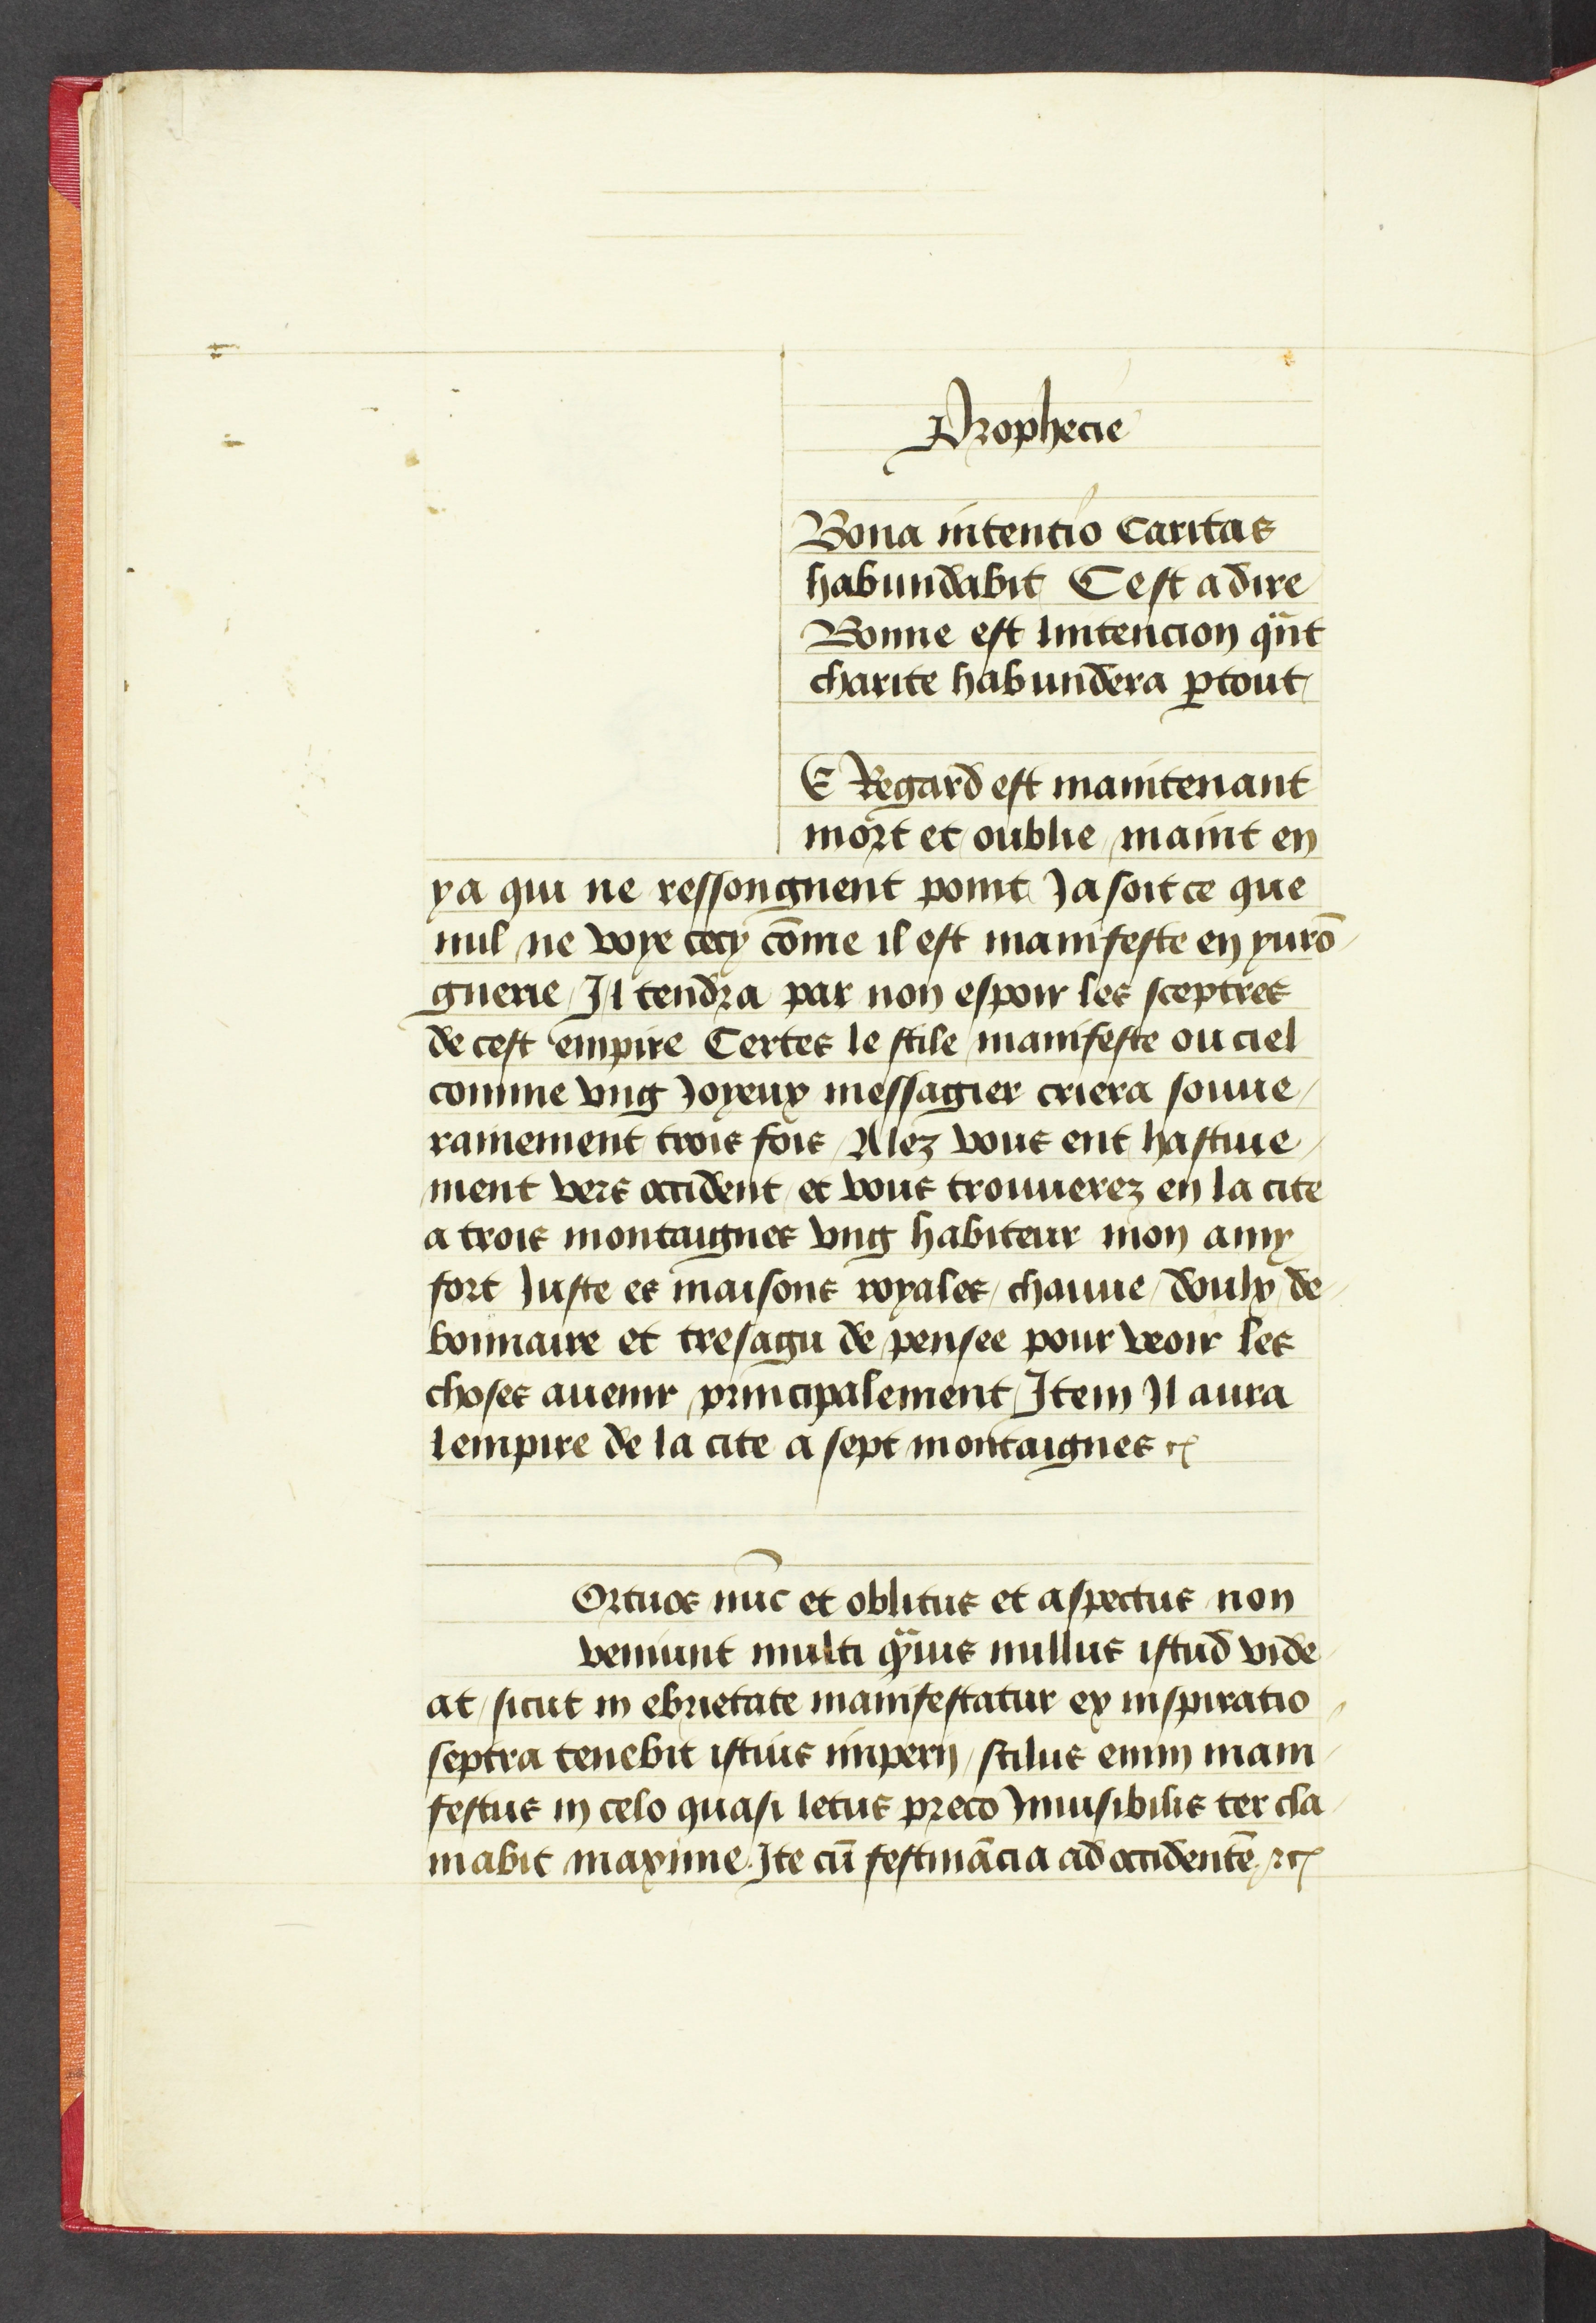 Prophecie
Bona intentio Caritas
habundabit Cest adire
Bonne est lintencion qñt
charite habundera ꝑtout
E Regard est maintenant
mort et oublie maint en
ya qui ne ressongnent point Ja soit ce que
nul ne voye cecy cōme il est manifeste en yurō
gnerie Il tendra par non espoir les sceptres
de cest empire Certes le stile manifeste ou ciel
comme vng Joyeux messagier criera souue
rainement trois fois Alez vous ent hastiue
ment vers occident et vous trouuerez en la cite
a trois montaignes vng habiteur mon amy
fort Juste es maisons royales chauue doulx de
bonnaire et tresagu de pensee pour veoir les
choses auenir principalement Item Il aura
lempire de la cite a sept montaignes
Ortuos nūc et oblitus et aspectus non
veniunt multi nullus istud vide
at sicut in ebrietate manifestatur ex inspiratio
septra tenebit istius imperij stilus enim mani
festus in celo quasi letus preco Jnuisibilis ter cla
mabit maxime Ite cū festinācia ad occidentē